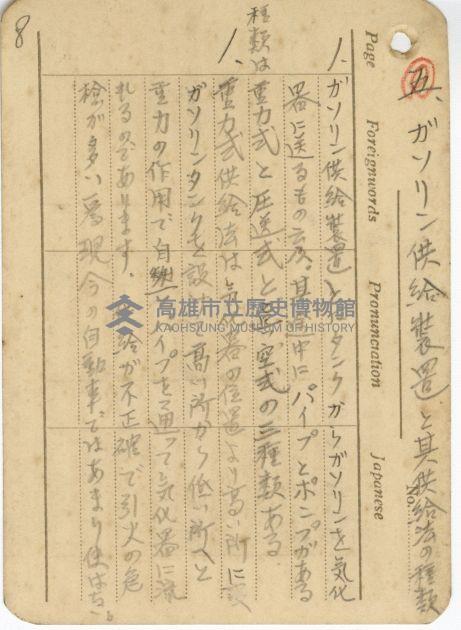 8
Page Foreignwords Pronunciation Japanese
No.
五、ガソリン供給装置と其供給法の種類
1、ガソリン供給装置とはタンクからガソリンを気化
器に送るもの云ふ。其の中に パイプとポンプがある
種類は重力式と圧送式と真空式の三種類ある
1、重力式供給法は気化器の位置より高い所に
ガソリンタンクを設け 高い所から低い所へと
重力の作用で自然パイプを通って気化器に流
れるのであります。供給が不正確で引火の危
険が多い為現今の自動車ではあまり使はない。
高雄市立歷史博物館
KAOHSIUNG MUSEUM OF HISTORY